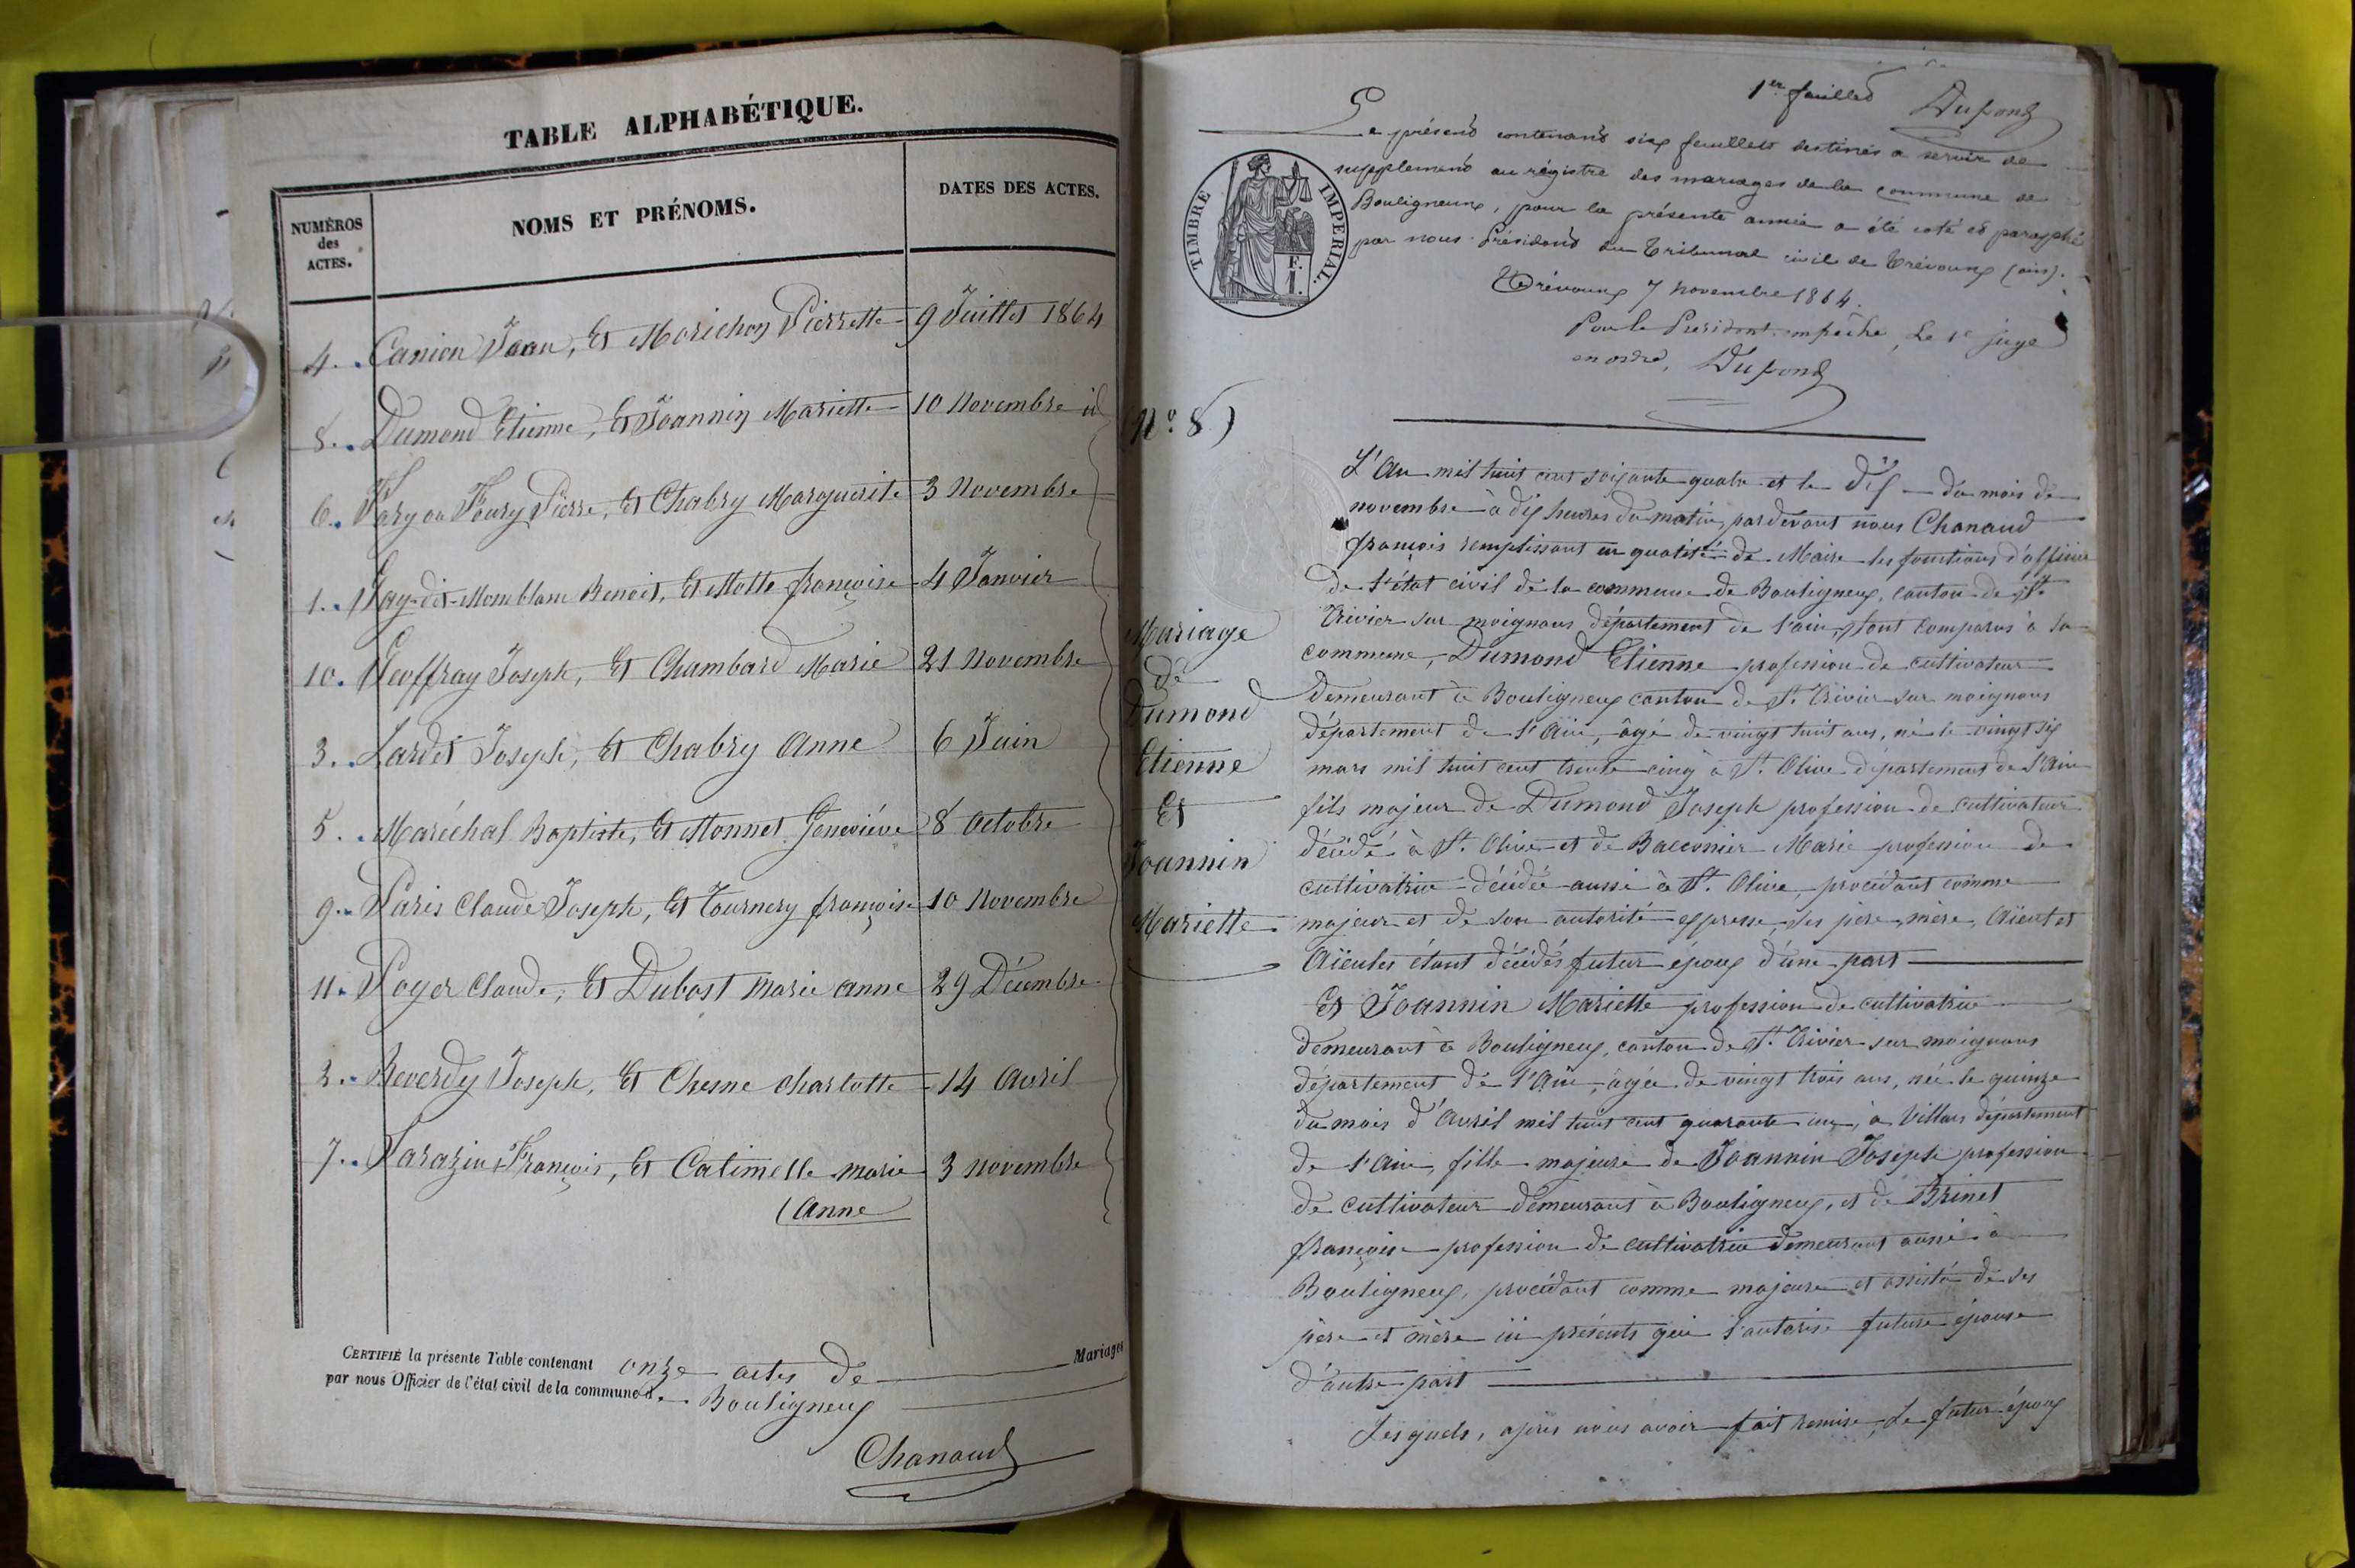 TABLE ALPHABÉTIQUE.
NUMÉROS
des
ACTES.
NOMS ET PRÉNOMS.
DATES DES ACTES.
4. Canion Jean, Et Morichon Pierrette 9 Juillet 1864
8. Dumond Etienne, Et Joannin Mariette 10 Novembre id
6. Fary ou Foury Pierre, Et Chabry Marguerite 3 Novembre
1. Gay-dit-Momblanc Benoit, Et Motte françoise 4 Janvier
10. Geoffray Joseph, Et Chambard Marie 21 Novembre
3. Lardet Joseph, Et Chabry Anne 6 Juin
5. Maréchal Baptiste, Et Monnet Geneviéve 8 Octobre
9. Paris Claude Joseph, Et Tournery françoise 10 Novembre
11. Poyer Claude, Et Dubost Marie anne 29 Décembre
2. Reverdy Joseph, Et Chesne charlotte 14 Avril
7. Sarazin François, Et Catimelle marie 3 novembre
(Anne
CERTIFIÉ la présente Table contenant onze actes de Mariages
par nous Officier de l'état civil de la commune de Bouligneux
Chanaud
1er feuillet Dupond
Le présent contenant six feuillets destinés a servir de
supplement au régistre des mariages de la commune de
Bouligneux, pour la présente année a été coté et paraphé
par nous Président du Tribunal civil de Trévoux (ain).
Trévoux 7 novembre 1864.
Pour le President empêché, Le 1er juge
en ordre, Dupond
TIMBRE IMPERIAL.
F.
1.
(N° 8)
Mariage
de
Dumond
Etienne
Et
Joannin
Mariette
L'An mil huit cent soixante quatre et le dix du mois de
novembre à dix heures du matin, pardevant nous Chanaud
françois remplissant en qualité de Maire les fonctions d'officier
de l'état civil de la commune de Bouligneux, canton de St.
Trivier sur moignans département de l'ain, sont comparus à la
commune, Dumond Etienne profession de cultivateur
demeurant à Bouligneux canton de St. Trivier sur moignans
département de l'Ain, âgé de vingt huit ans, né le vingt six
mars mil huit cent trente cinq à St. Olive département de l'Ain
fils majeur de Dumond Joseph profession de cultivateur
décédé à St. Olive et de Balconnier Marie profession de
cultivatrice décédée aussi à St. Olive, procédant comme
majeur et de son autorité expresse, ses père, mère, Aïeul et
Aïeules étant décédés futur époux d'une part
Et Joannin Mariette profession de cultivatrice
demeurant à Bouligneux, canton de St. Trivier sur moignans
département de l'Ain, âgée de vingt trois ans, née le quinze
du mois d'Avril mil huit cent quarante un, à Villars département
de l'Ain, fille majeure de Joannin Joseph profession
de cultivateur demeurant à Bouligneux, et de Brinet
françoise profession de cultivatrice demeurant aussi à
Bouligneux, procédant comme majeure et assistée de ses
père et mère ici présents qui l'autorise future épouse
d'autre part
Lesquels, après nous avoir fait remise, Le futur époux